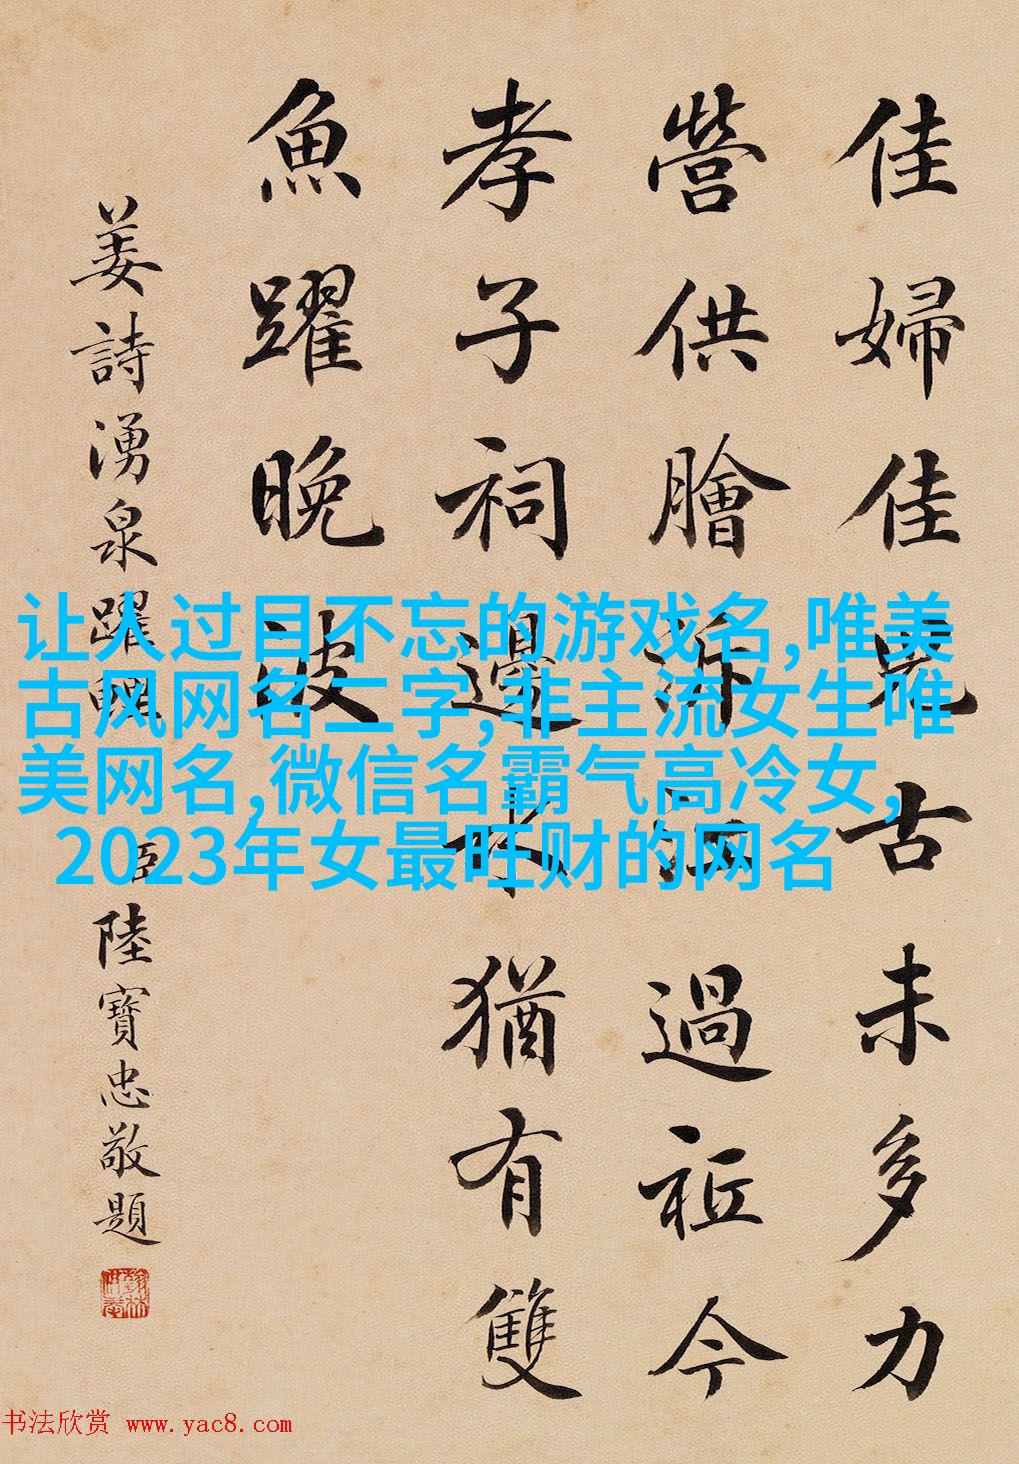 佳婦佳兒古未多力
營供膾泝江過祇今
孝子祠邊水猶有雙
魚躍晚波
姜詩湧泉躍鯉 臣陸寶忠敬題
让人过目不忘的游戏名,唯美
古风网名二字,非主流女生唯
美网名,微信名霸气高冷女,
2023年女最旺财的网名
书法欣赏 www.yac8.com